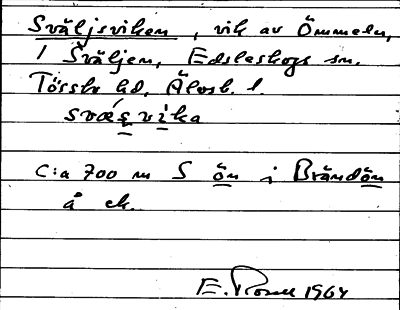 Sväljsviken, vik av Ömmeln,
i Sväljen, Edsleskogs sn.
Tössbo hd, Älvsb. l.
svæ̀s̱vi̱ka
C:a 700 m S ön i Brändön
å ek.
E. 1964